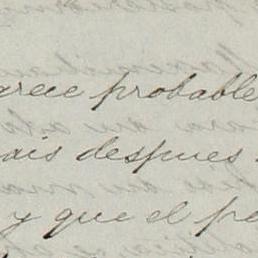 arece probable
ais despues
y que el pe